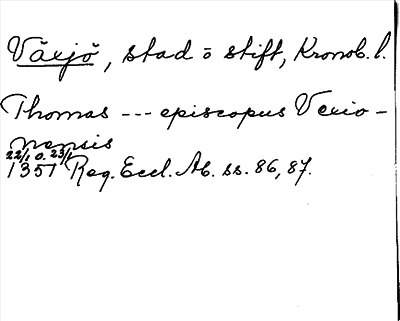 Växjö, stad o stift, Kronob. l.
Thomas --- episcopus Vexio-
nensis
22/1 o. 23/1
1351 Reg. Eccl. Ab. ss. 86, 87.